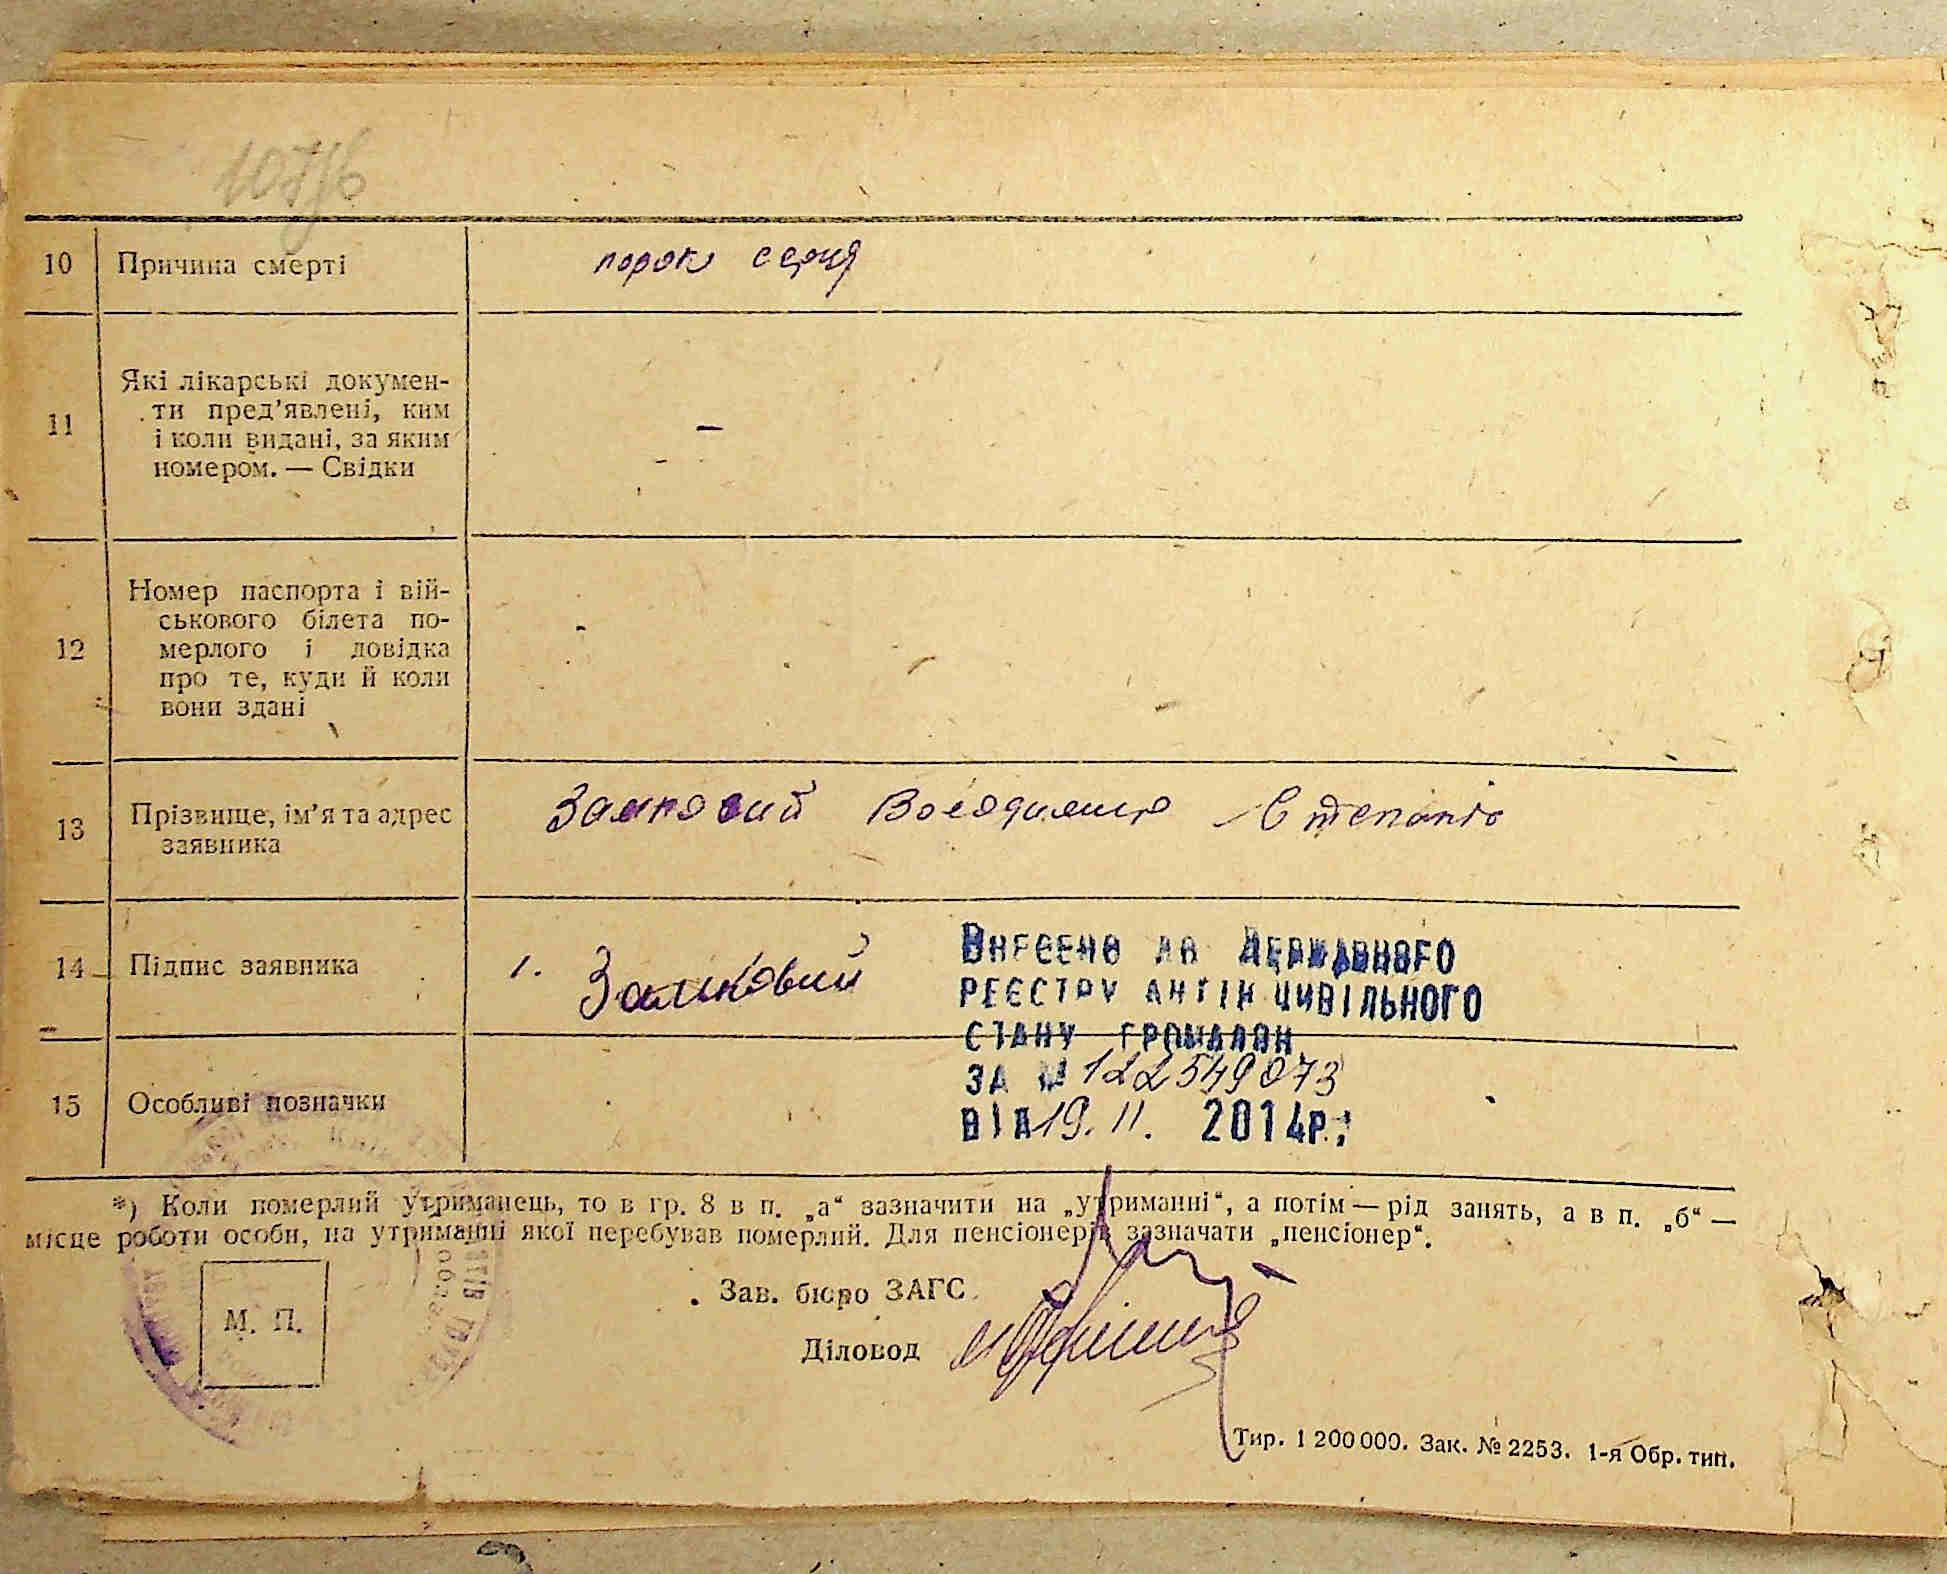 10776
10 Причина смерті порок серця
11 Які лікарські докумен-
ти пред'явлені, ким
і коли видані, за яким
номером. — Свідки —
12 Номер паспорта і вій-
ськового білета по-
мерлого і довідка
про те, куди й коли
вони здані -
13 Прізвище, ім'я та адрес
заявника
Замковий Володимир Степанів
14 Підпис заявника 1. Замковий
Внесено до Державного
реєстру актів цивільного
стану громадян
за № 122549073
від 19.11. 2014р.
15 Особливі позначки
*) Коли померлий утриманець, то в гр. 8 в п. „а“ зазначити на „утриманні“, а потім — рід занять, а в п. „б“ —
місце роботи особи, на утриманні якої перебував померлий. Для пенсіонерів зазначати „пенсіонер“.
М. П.
Зав. бюро ЗАГС
Діловод
Тир. 1 200 000. Зак. № 2253. 1-я Обр. тип.